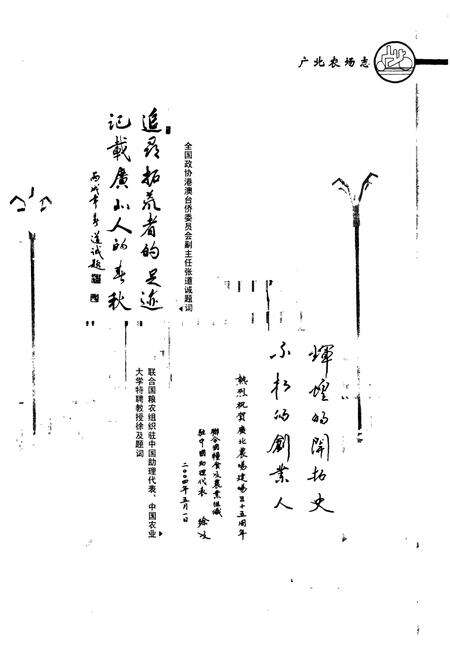 广北农场志
追尋拓荒者的足迹
记載廣北人的春秋
丙戌年春道诚题
全国政协港澳台侨委员会副主任张道诚题词
輝煌的開拓史
不朽的創業人
熱烈祝賀廣北農場建場五十五周年
聯合國糧食及農業組織
駐中國助理代表 徐及
二〇〇四年五月一日
联合国粮农组织驻中国助理代表、中国农业
大学特聘教授徐及题词